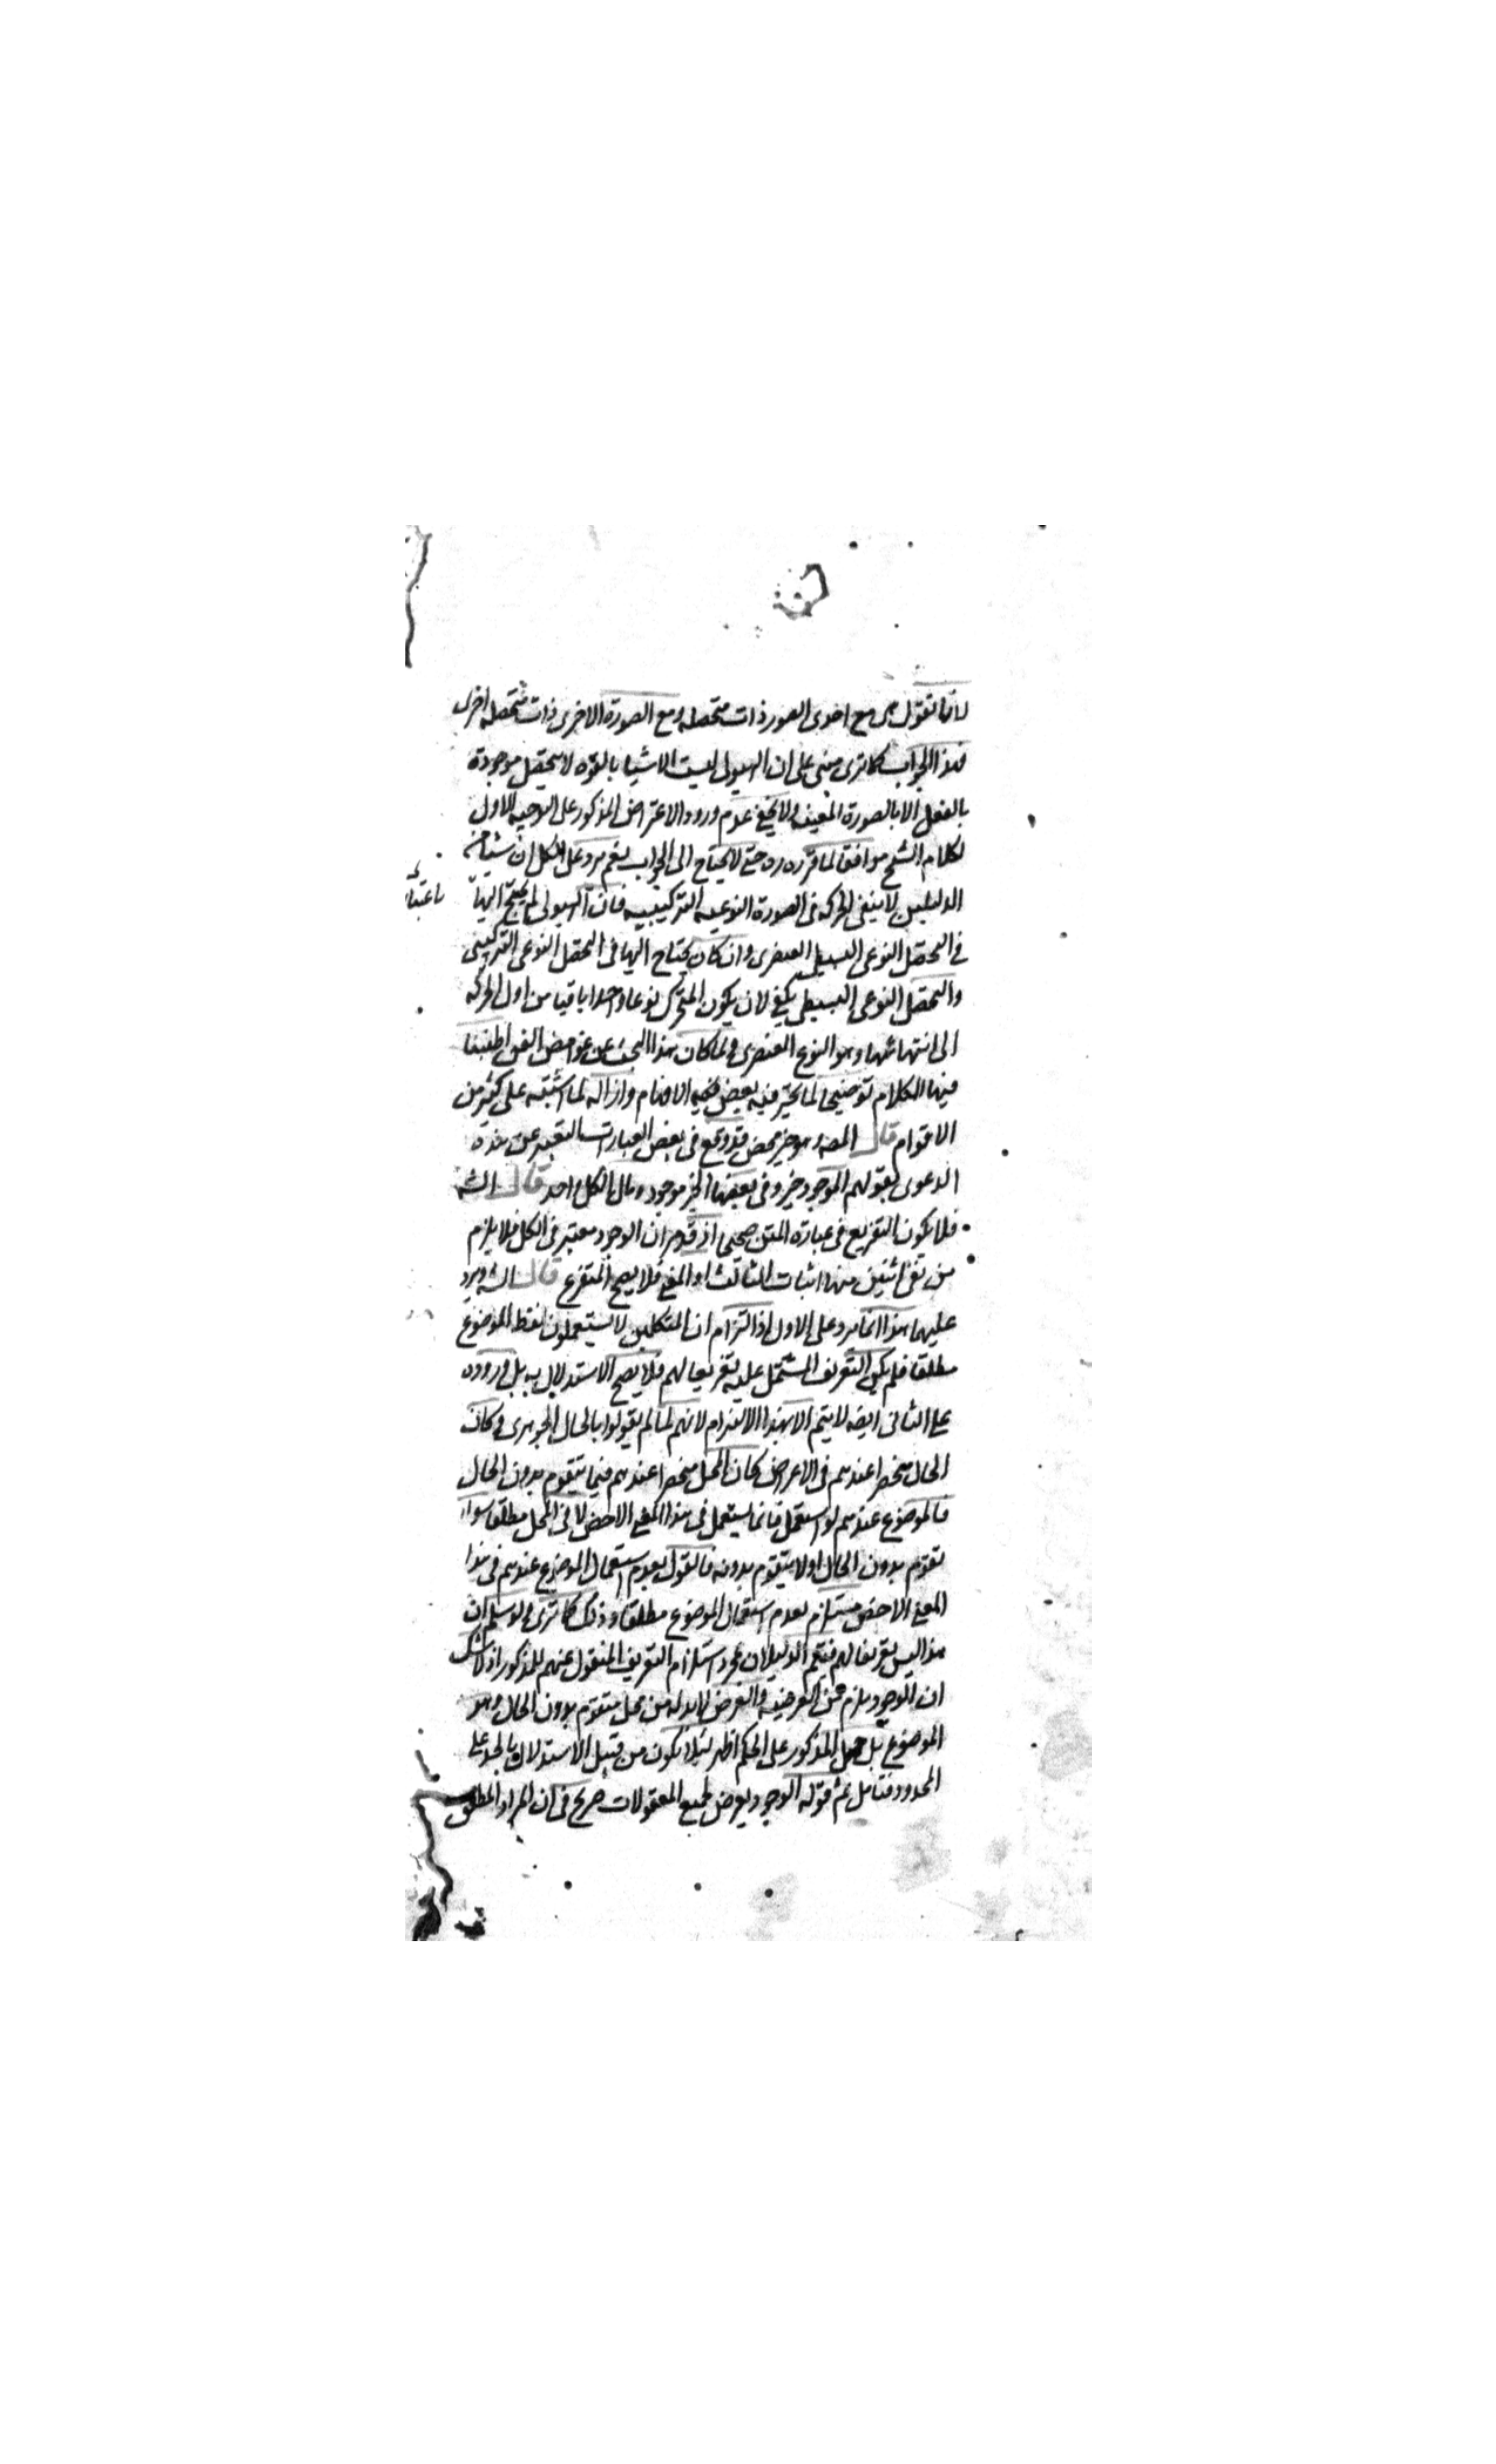 لانا نقول هى مع احدى الصور ذات متحصله ومع الصورة الاخرى ذات متحصله اخرى
فهذا الجواب كما ترى مبنى على ان الهيولى ليست الاشيا بالقوه لا يتحصل موجودة
بالفعل الا بالصورة المعينه ولا يخفى عدم ورود الاعتراض المذكور على التوجيه الاول
لكلام الشيخ موافق لما قرره ره حتى لا يحتاج الى الجواب نعم يرد على الكل ان شيئا من
الدليلين لا ينفى الحركه فى الصورة النوعيه التركيبيه فان الهيولى لم يحتج اليها
باعتبار
فى التحصل النوعى البسيطى العنصرى وان كان يحتاج اليها فى التحصل النوعى التركيبى
والتحصل النوعى البسيطى يكفى لان يكون المتحرك نوعا واحدا باقيا من اول الحركه
الى انتهائها وهو النوع العنصرى ولما كان هذا البحث من غوامض الفن اطنبنا
فيها الكلام توضيحا لما تحير فيه بعض الافهام وازاله لما اشتبه على كثير من
الاقوام قال المصه وهو خير محض قد وقع فى بعض العبارات التعبير عن هذه
الدعوى بقولهم الوجود خير وفى بعضها الخير موجود ومال الكل واحد قال الشه
فلا يكون التفريع فى عبارة المتن صحيحا اذ قد مر ان الوجود معتبر فى الكل فلا يلزم
من نفى اثنين منها اثبات الثالث او المعنى فلا يصح المتفرع قال الشه ويرد
عليهما هذا انما يرد على الاول اذا التزم ان المتكلمين لا يستعملون لفظ الموضوع
مطلقا فلم يكن التعريف المشتمل عليه تعريفا لهم فلا يصح الاستدلال به بل وروده
على الثانى ايضه لا يتم الا بهذا الالتزام لانهم لما لم يقولوا بالحال الجوهرى وكان
الحال منحصرا عندهم فى الاعراض كان المحل منحصرا عندهم فيما يتقوم بدون الحال
فالموضوع عندهم لو استعمل فانما يستعمل فى هذا المعنى الاخص لا فى المحل مطلقا سواء
تقوم بدون الحال او لا يتقوم بدونه فالقول بعدم استعمال الموضوع عندهم فى هذا
المعنى الاخص مستلزم لعدم استعمال الموضوع مطلقا وذلك كما ترى ولو سلم ان
هذا ليس تعريفا لهم فيتم الدليلان بمجرد استلزام التعريف المنقول عنهم للمذكور اذ لا شك
ان الوجود يلزم العرضيه والعرض لا بد له من محل متقوم بدون الحال وهو
الموضوع بل حمل المذكور على الحكم اظهر لئلا يكون من قبيل الاستدلال بالحد على
المحدود فتامل ثم قوله الوجود يعرض لجميع المعقولات صريح فى ان المراد المطلق